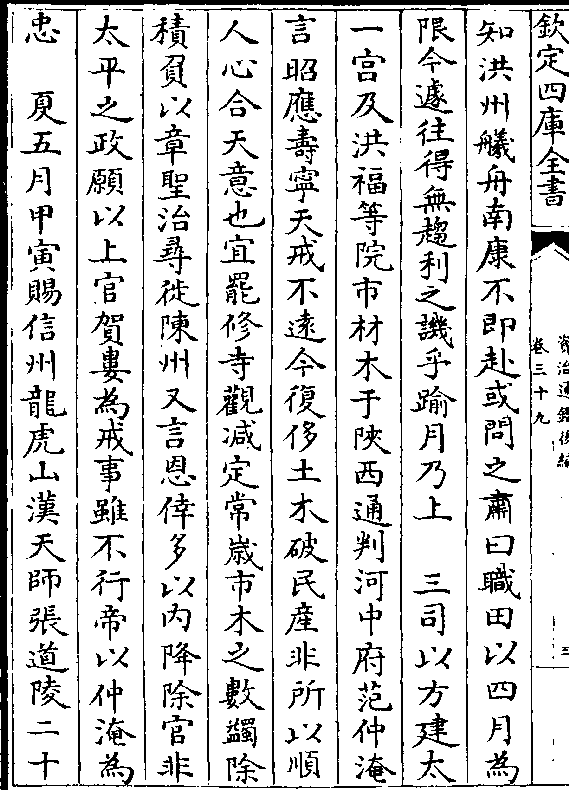 欽定四庫全書
資治通鑑後編
卷三十九
三
知洪州艤舟南康不即赴或問之肅曰職田以四月為
限今遽往得無趨利之譏乎踰月乃上　三司以方建太
一宫及洪福等院市材木于陜西通判河中府范仲淹
言昭應壽寧天戒不遠今復侈土木破民産非所以順
人心合天意也宜罷修寺觀减定常歲市木之數蠲除
積負以章聖治尋徙陳州又言恩倖多以内降除官非
太平之政願以上官賀婁為戒事雖不行帝以仲淹為
忠　夏五月甲寅賜信州龍虎山漢天師張道陵二十